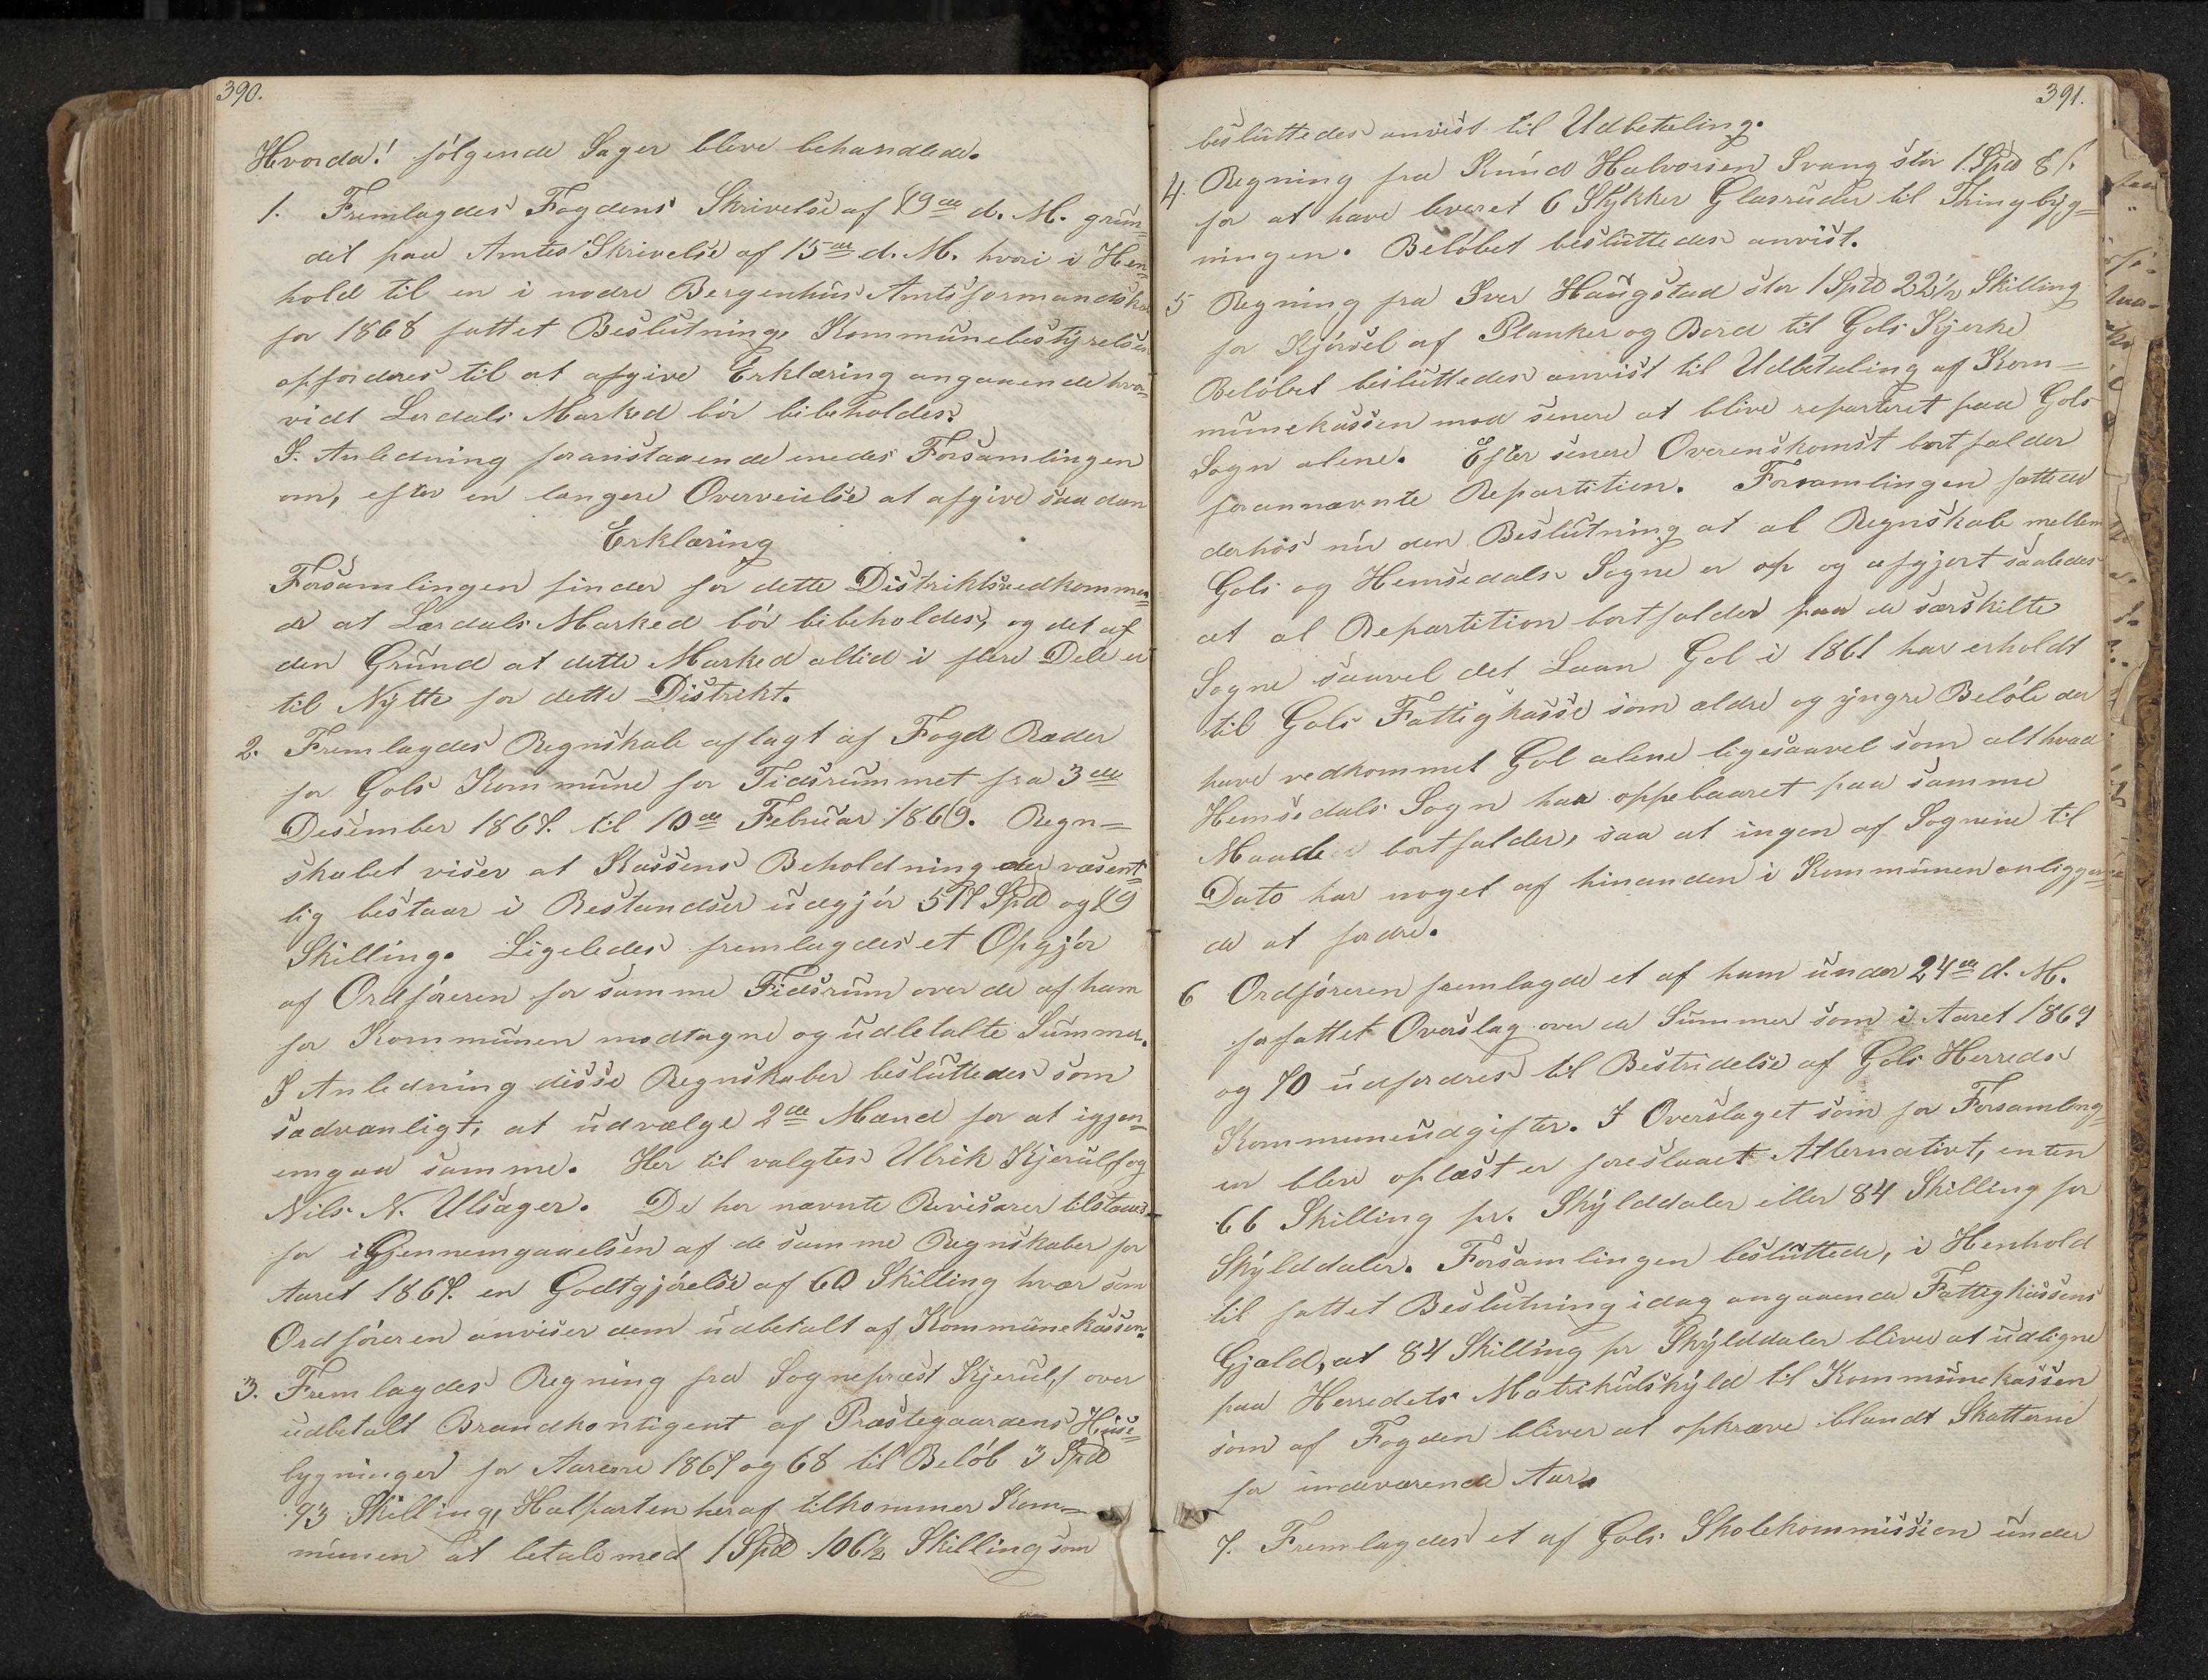 390.
Hvorda! følgende Sager bleve behandlede.
1. Fremlagdes Fogdens Skrivelse af 19de d. M. grun=
det paa Amtes Skrivelse af 15de d. M. hvori i Hen=
hold til en i nodre Bergenhus Amtsformandskab
for 1868 fattet Beslutning, Kommunebestyrelsen
opfordres til at afgive Erklæring angaaende hvor=
vidt Lerdals Marked bør bibeholdes?
I. Anledning foranstaaende enedes Forsamlingen
om, efter en længere Overveielse at afgive saadan
Erklæring
Forsamlingen finder for dette Distriktsvedkommen=
de at Lærdals Marked bør bibeholdes, og det af
den Grund at dette Marked altid i flere Dele er
til Nytte for dette Distrikt.
2. Fremlagdes Regnskab aflagt af Fogd Ræder
for Gols Kommune for Tidsrummet fra 3de
Desember 1867. til 10de Februar 1869. Regn=
skabet viser at Kassens Beholdning der væsent=
lig bestaar i Restandser udgjør Spd og 19
Skilling. Ligeledes fremlagdes et Opgjør
af Ordføreren for samme Tidsrum over de af ham
for Kommunen modtagne og udbetalte Summer.
I Anledning disse Regnskaber besluttedes som
sædvanligt, at udvælge 2de Mænd for at igjen=
emgaa samme. Her til valgtes Ulrik Kjerulf og
Nils N. Ulsager. De her nævnte Revisorer tilstaaes
for iGjennemgaaelsen af de samme Regnskaber for
Aaret 1867. en Godtgjørelse af 60 Skilling hvær som
Ordføreren anviser dem udbetalt af Kommunekassen.
3. Fremlagdes Regning fra Sognepræst Kjerulf over
udbetalt Brandkontigent af Præstegaardens Huse=
bygninger for Aarene 1867 og 68 til Beløb 3 Spd
93 Skilling, Halparten heraf tilkommer Kom=
munen at betale med 1 Spd 106½ Skilling som
391.
besluttedes anvist til Udbetaling.
4. Regning fra Knud Halvorsen Svang stor 1 Spd 8 s.
for at have leveret 6 Stykker Glasruder til Thingbyg=
ningen. Beløbet besluttedes anvist.
5 Regning fra Iver Haugstad stor 1 Spd 22½ Skilling
for Kjørsel af Planker og Bord til Gols Kjerke
Beløbet besluttedes anvist til Udbetaling af Kom=
munekassen mod senere at blive reparteret paa Gols
Sogn alene. Efter senere Overenskomst bortfalder
forannævnte Repartition. Forsamlingen fattede
derhos nu den Beslutning at al Regnskab mellem
Gols og Hemsedals Sogne er op og afgjort saaledes
at al Repartition bortfalder paa de særskilte
Sogne saavel det Laan Gol i 1861 har erholdt
til Gols Fattigkasse som ældre og yngre Beløb der
have vedkommet Gol alene ligesaavel som alt hvad
Hemsedals Sogn haa oppebaaret paa samme
Maade bortfalder, saa at ingen af Sognene til
Dato har noget af hinanden i Kommunen anliggen=
de at fordre.
6 Ordføreren fremlagde et af ham under 24de d. M.
forfattet Overslag over de Summer som i Aaret 1869
og 70 udfordres til Bestridelse af Gols Herreds
Kommuneudgifter. I Overslaget som for Forsamling=
en blev oplæst er foreslaaet Alternativt, enten
66 Skilling pr. Skylddaler eller 84 Skilling pr
Skylddaler. Forsamlingen besluttede, i Henhold
til fattet Beslutning idag angaaende Fattigkassens
Gjæld, at 84 Skilling pr Skylddaler bliver at udligne
paa Herredets Matrikulskyld til Kommunekassen
som af Fogden bliver at opkræve blandt Skatterne
for indeværende Aar.
7. Fremlagdes et af Gols Skolekommission under